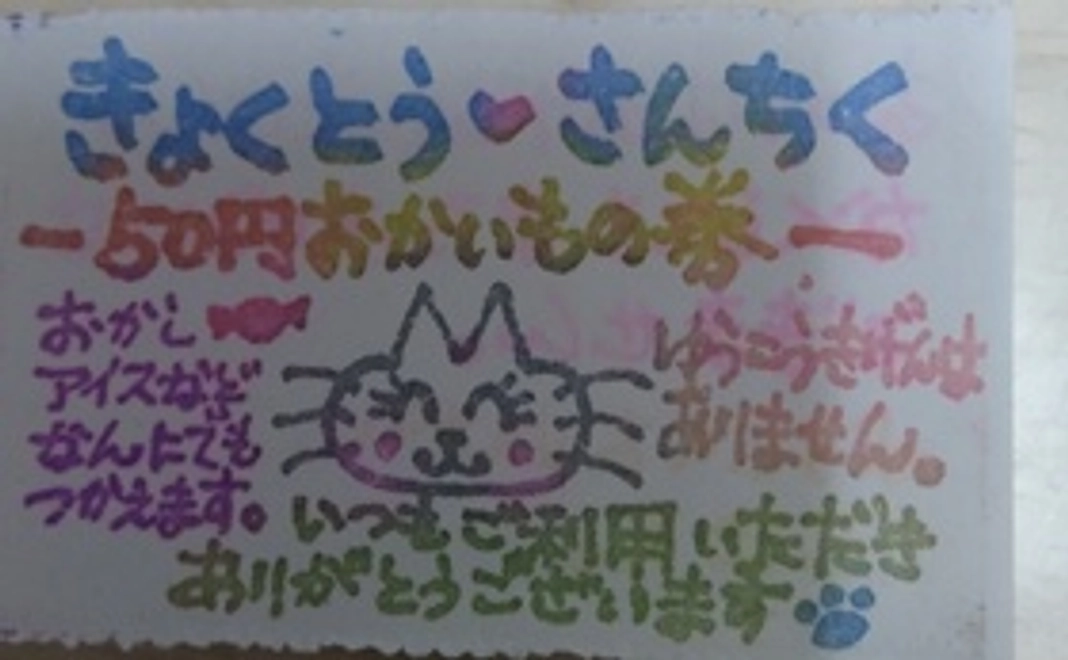 きょくとう♥さんちく
ー50円おかいもの券ー
おかし
アイスなど
なんにでも
つかえます。
ゆうこうきげんは
ありません。
いつもご利用いただき
ありがとうございます